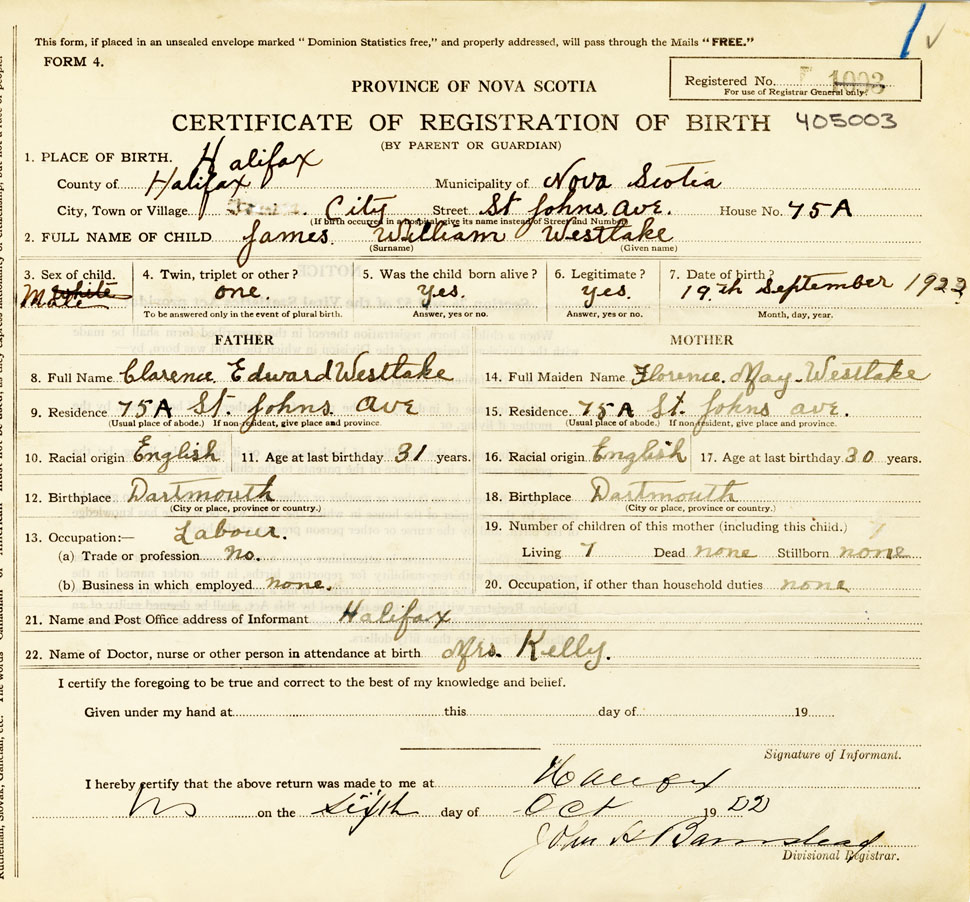 This form, if placed in an unsealed envelope marked "Dominion Statistics free," and properly addressed, will pass through the Mails "FREE."
FORM 4.
PROVINCE OF NOVA SCOTIA
Registered No. 1003
For use of Registrar General only.
CERTIFICATE OF REGISTRATION OF BIRTH 405003
(BY PARENT OR GUARDIAN)
1. PLACE OF BIRTH. Halifax
County of Halifax Municipality of Nova Scotia
City, Town or Village City Street St Johns Ave. House No. 75A
(If birth occurred in a hospital give its name instead of Street and Number)
2. FULL NAME OF CHILD James William Westlake
(Surname) (Given name)
3. Sex of child. 4. Twin, triplet or other? 5. Was the child born alive? 6. Legitimate? 7. Date of birth?
Male White one. yes. yes. 19th September 1922
To be answered only in the event of plural birth. Answer, yes or no. Answer, yes or no. Month, day, year.
FATHER MOTHER
8. Full Name Clarence Edward Westlake 14. Full Maiden Name Florence May Westlake
9. Residence 75A St. Johns Ave 15. Residence 75A St. Johns ave.
(Usual place of abode.) If non-resident, give place and province. (Usual place of abode.) If non-resident, give place and province.
10. Racial origin English 11. Age at last birthday 31 years. 16. Racial origin English 17. Age at last birthday 30 years.
12. Birthplace Dartmouth 18. Birthplace Dartmouth
(City or place, province or country.) (City or place, province or country.)
13. Occupation:— Labour. 19. Number of children of this mother (including this child.)
(a) Trade or profession no. Living 7 Dead none Stillborn none
(b) Business in which employed none. 20. Occupation, if other than household duties none
21. Name and Post Office address of Informant Halifax
22. Name of Doctor, nurse or other person in attendance at birth Mrs. Kelly.
I certify the foregoing to be true and correct to the best of my knowledge and belief.
Given under my hand at this day of 19
Signature of Informant.
I hereby certify that the above return was made to me at Halifax
NS on the sixth day of Oct 1922
John H Barnstead
Divisional Registrar.